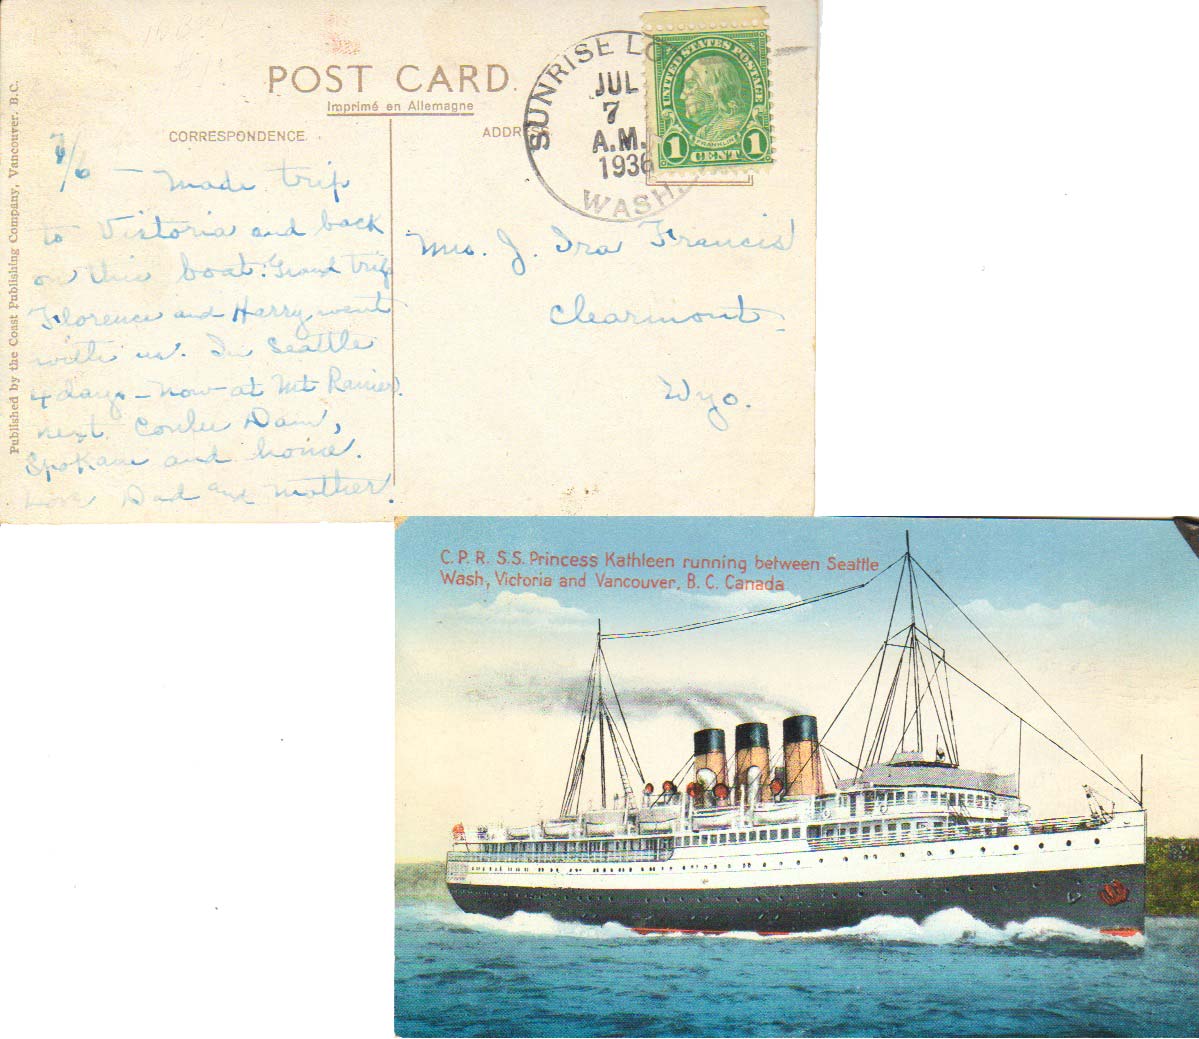 POST CARD.
Imprimé en Allemagne
CORRESPONDENCE.
ADDRESS.
Published by the Coast Publishing Company, Vancouver, B.C.
SUNRISE LO
JUL
7
A.M.
1936
WASH.
UNITED STATES POSTAGE
FRANKLIN
1 CENT 1
7/6 — Made trip
to Victoria and back
on this boat. Grand trip
Florence and Harry went
with us. In Seattle
4 days - now at Mt Ranier.
next Coulee Dam,
Spokane and home.
Love Dad and Mother.
Mrs. J. Ira Francis
Clearmont
Wyo.
C. P. R. S.S. Princess Kathleen running between Seattle
Wash, Victoria and Vancouver, B. C. Canada